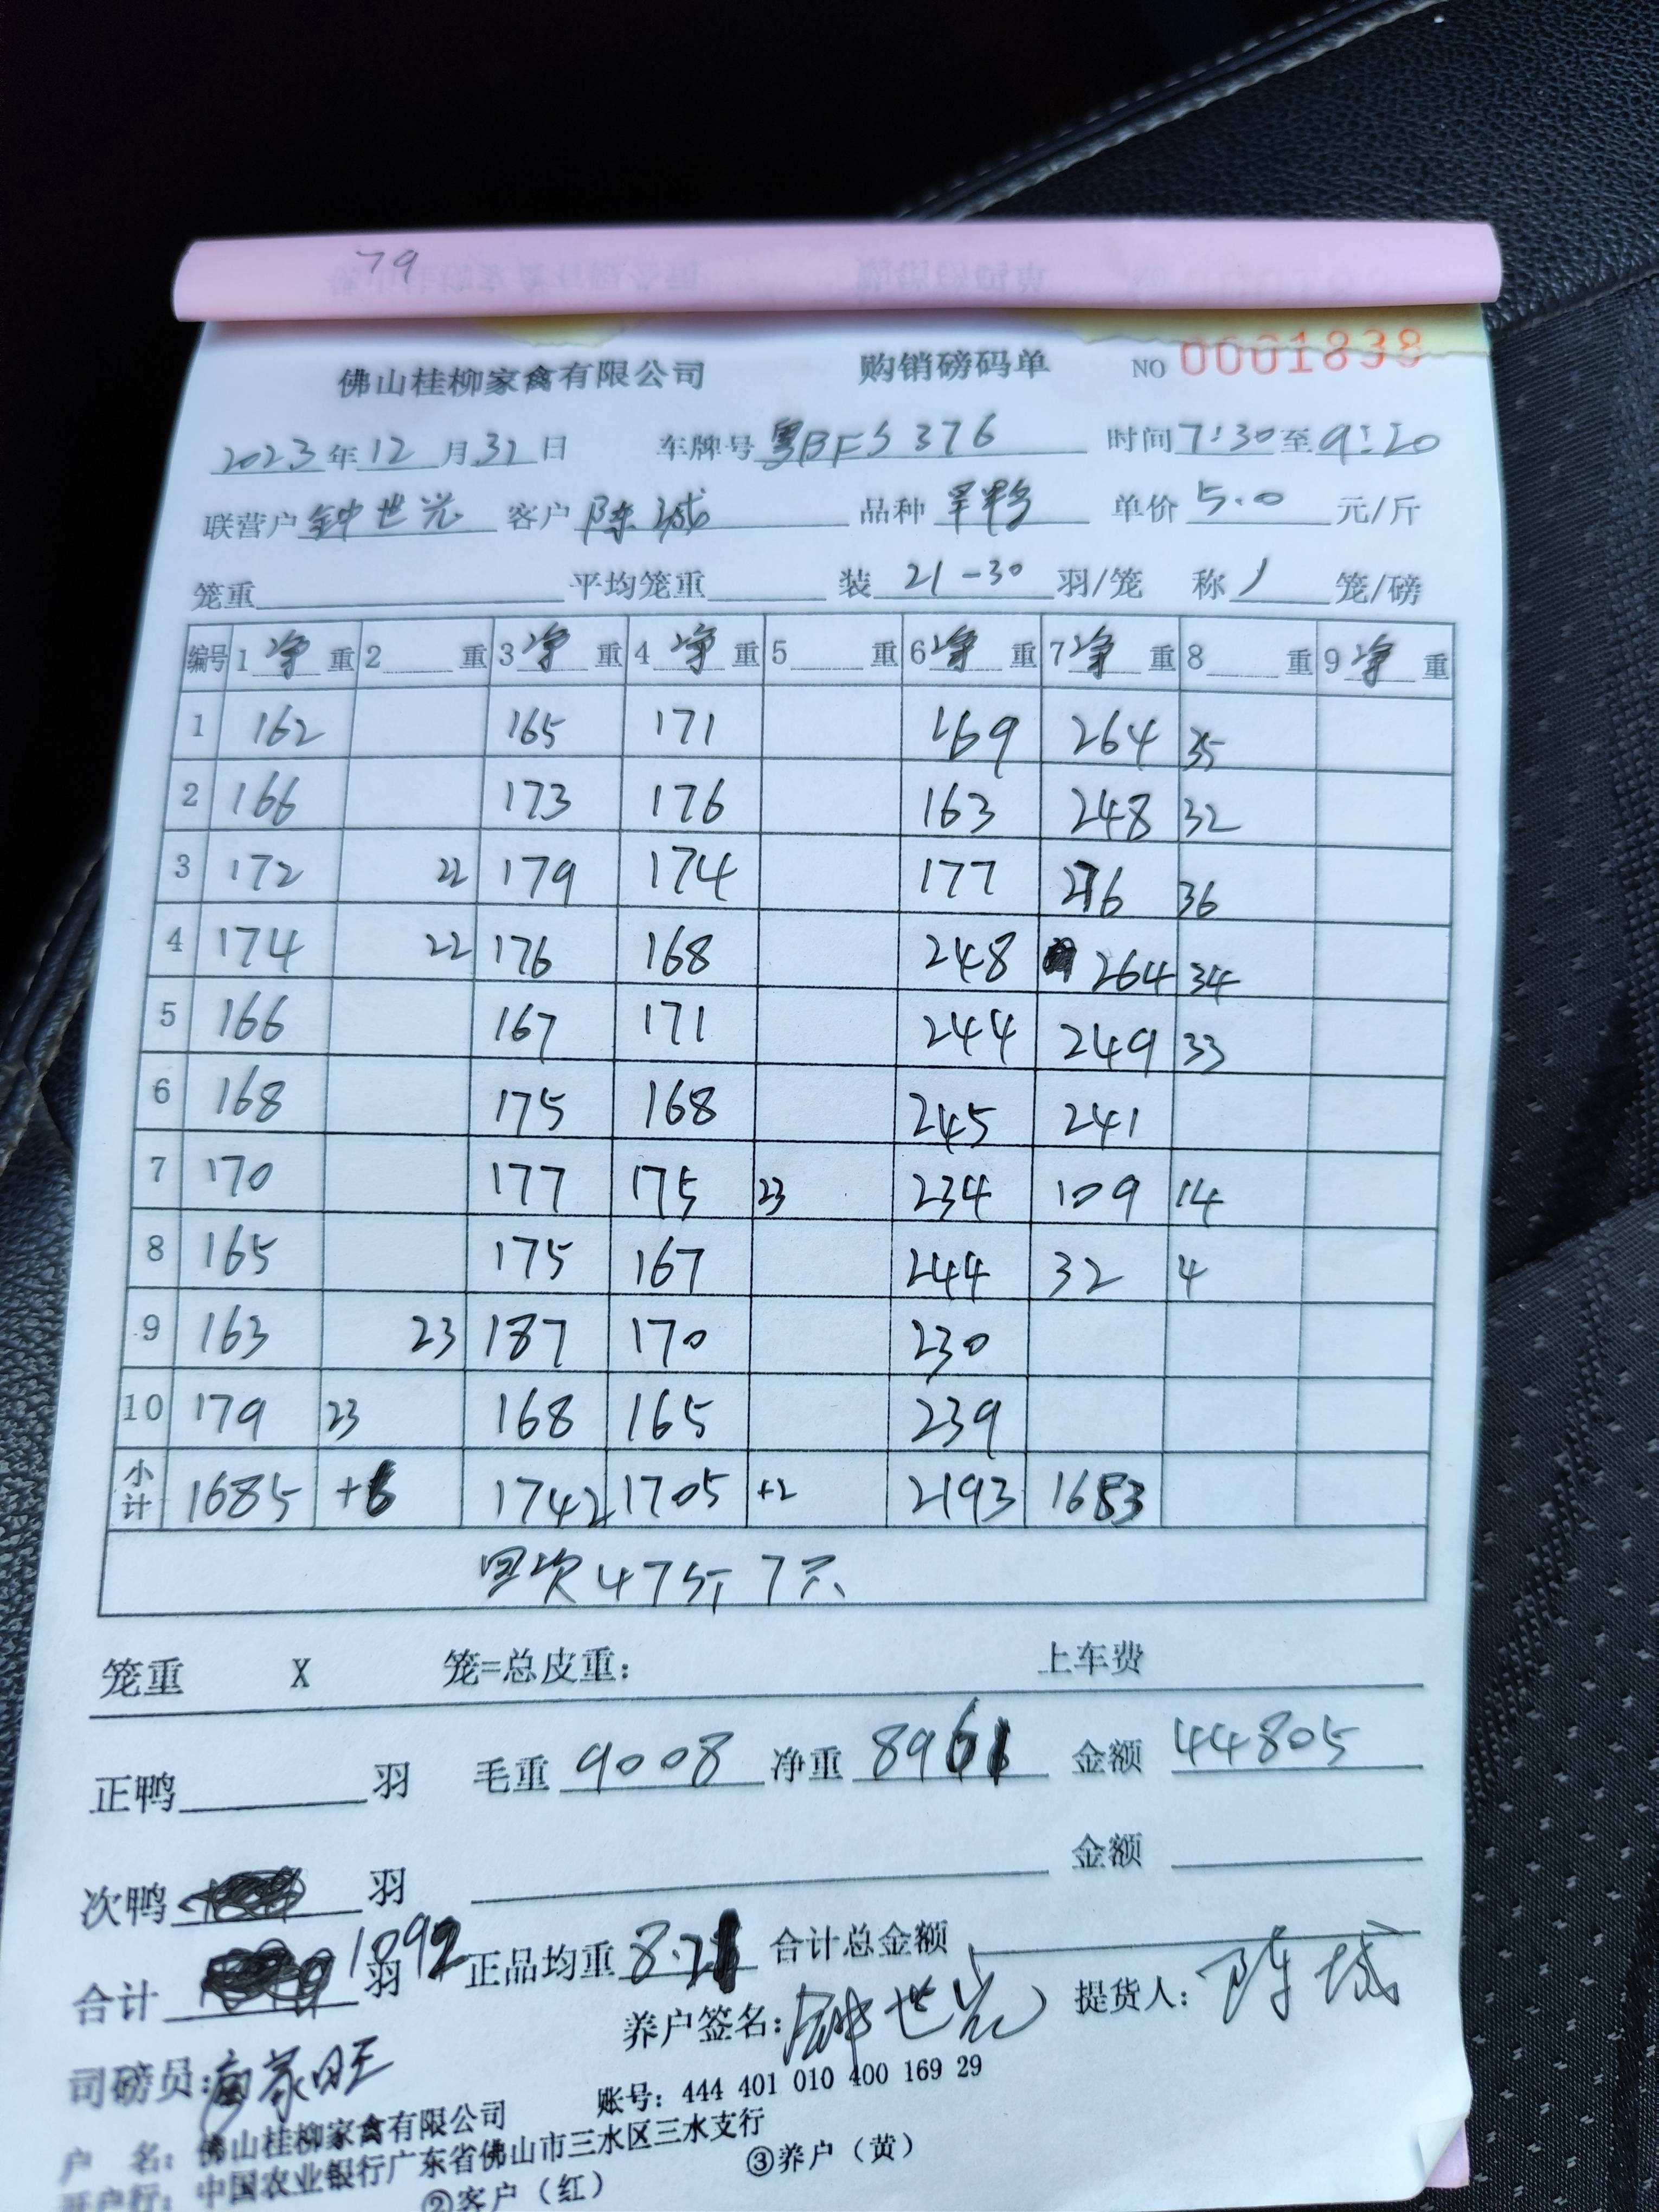 79
佛山桂柳家禽有限公司 购销磅码单 NO 0001838
2023年12月31日 车牌号粤BFS376 时间7:30至9:20
联营户钟世光 客户陈城 品种 单价5.0元/斤
笼重 平均笼重 装21-30羽/笼 称1笼/磅
编号 1净重 2重 3净重 4净重 5重 6净重 7净重 8重 9净重
1 162 165 171 169 264 35
2 166 173 176 163 248 32
3 172 22 179 174 177 276 36
4 174 22 176 168 248 264 34
5 166 167 171 244 249 33
6 168 175 168 245 241
7 170 177 175 23 234 109 14
8 165 175 167 244 32 4
9 163 23 187 170 230
10 179 23 168 165 239
小计 1685 +6 1742 1705 +2 2193 1683
回次47斤7只
笼重 X 笼=总皮重: 上车费
正鸭 羽 毛重9008 净重8961 金额44805
次鸭 羽 金额
合计 1092羽 正品均重8.21 合计总金额
司磅员: 养户签名:钟世光 提货人:陈城
户 名:佛山桂柳家禽有限公司 账号:444 401 010 400 169 29
开户行:中国农业银行广东省佛山市三水区三水支行
②客户(红) ③养户(黄)